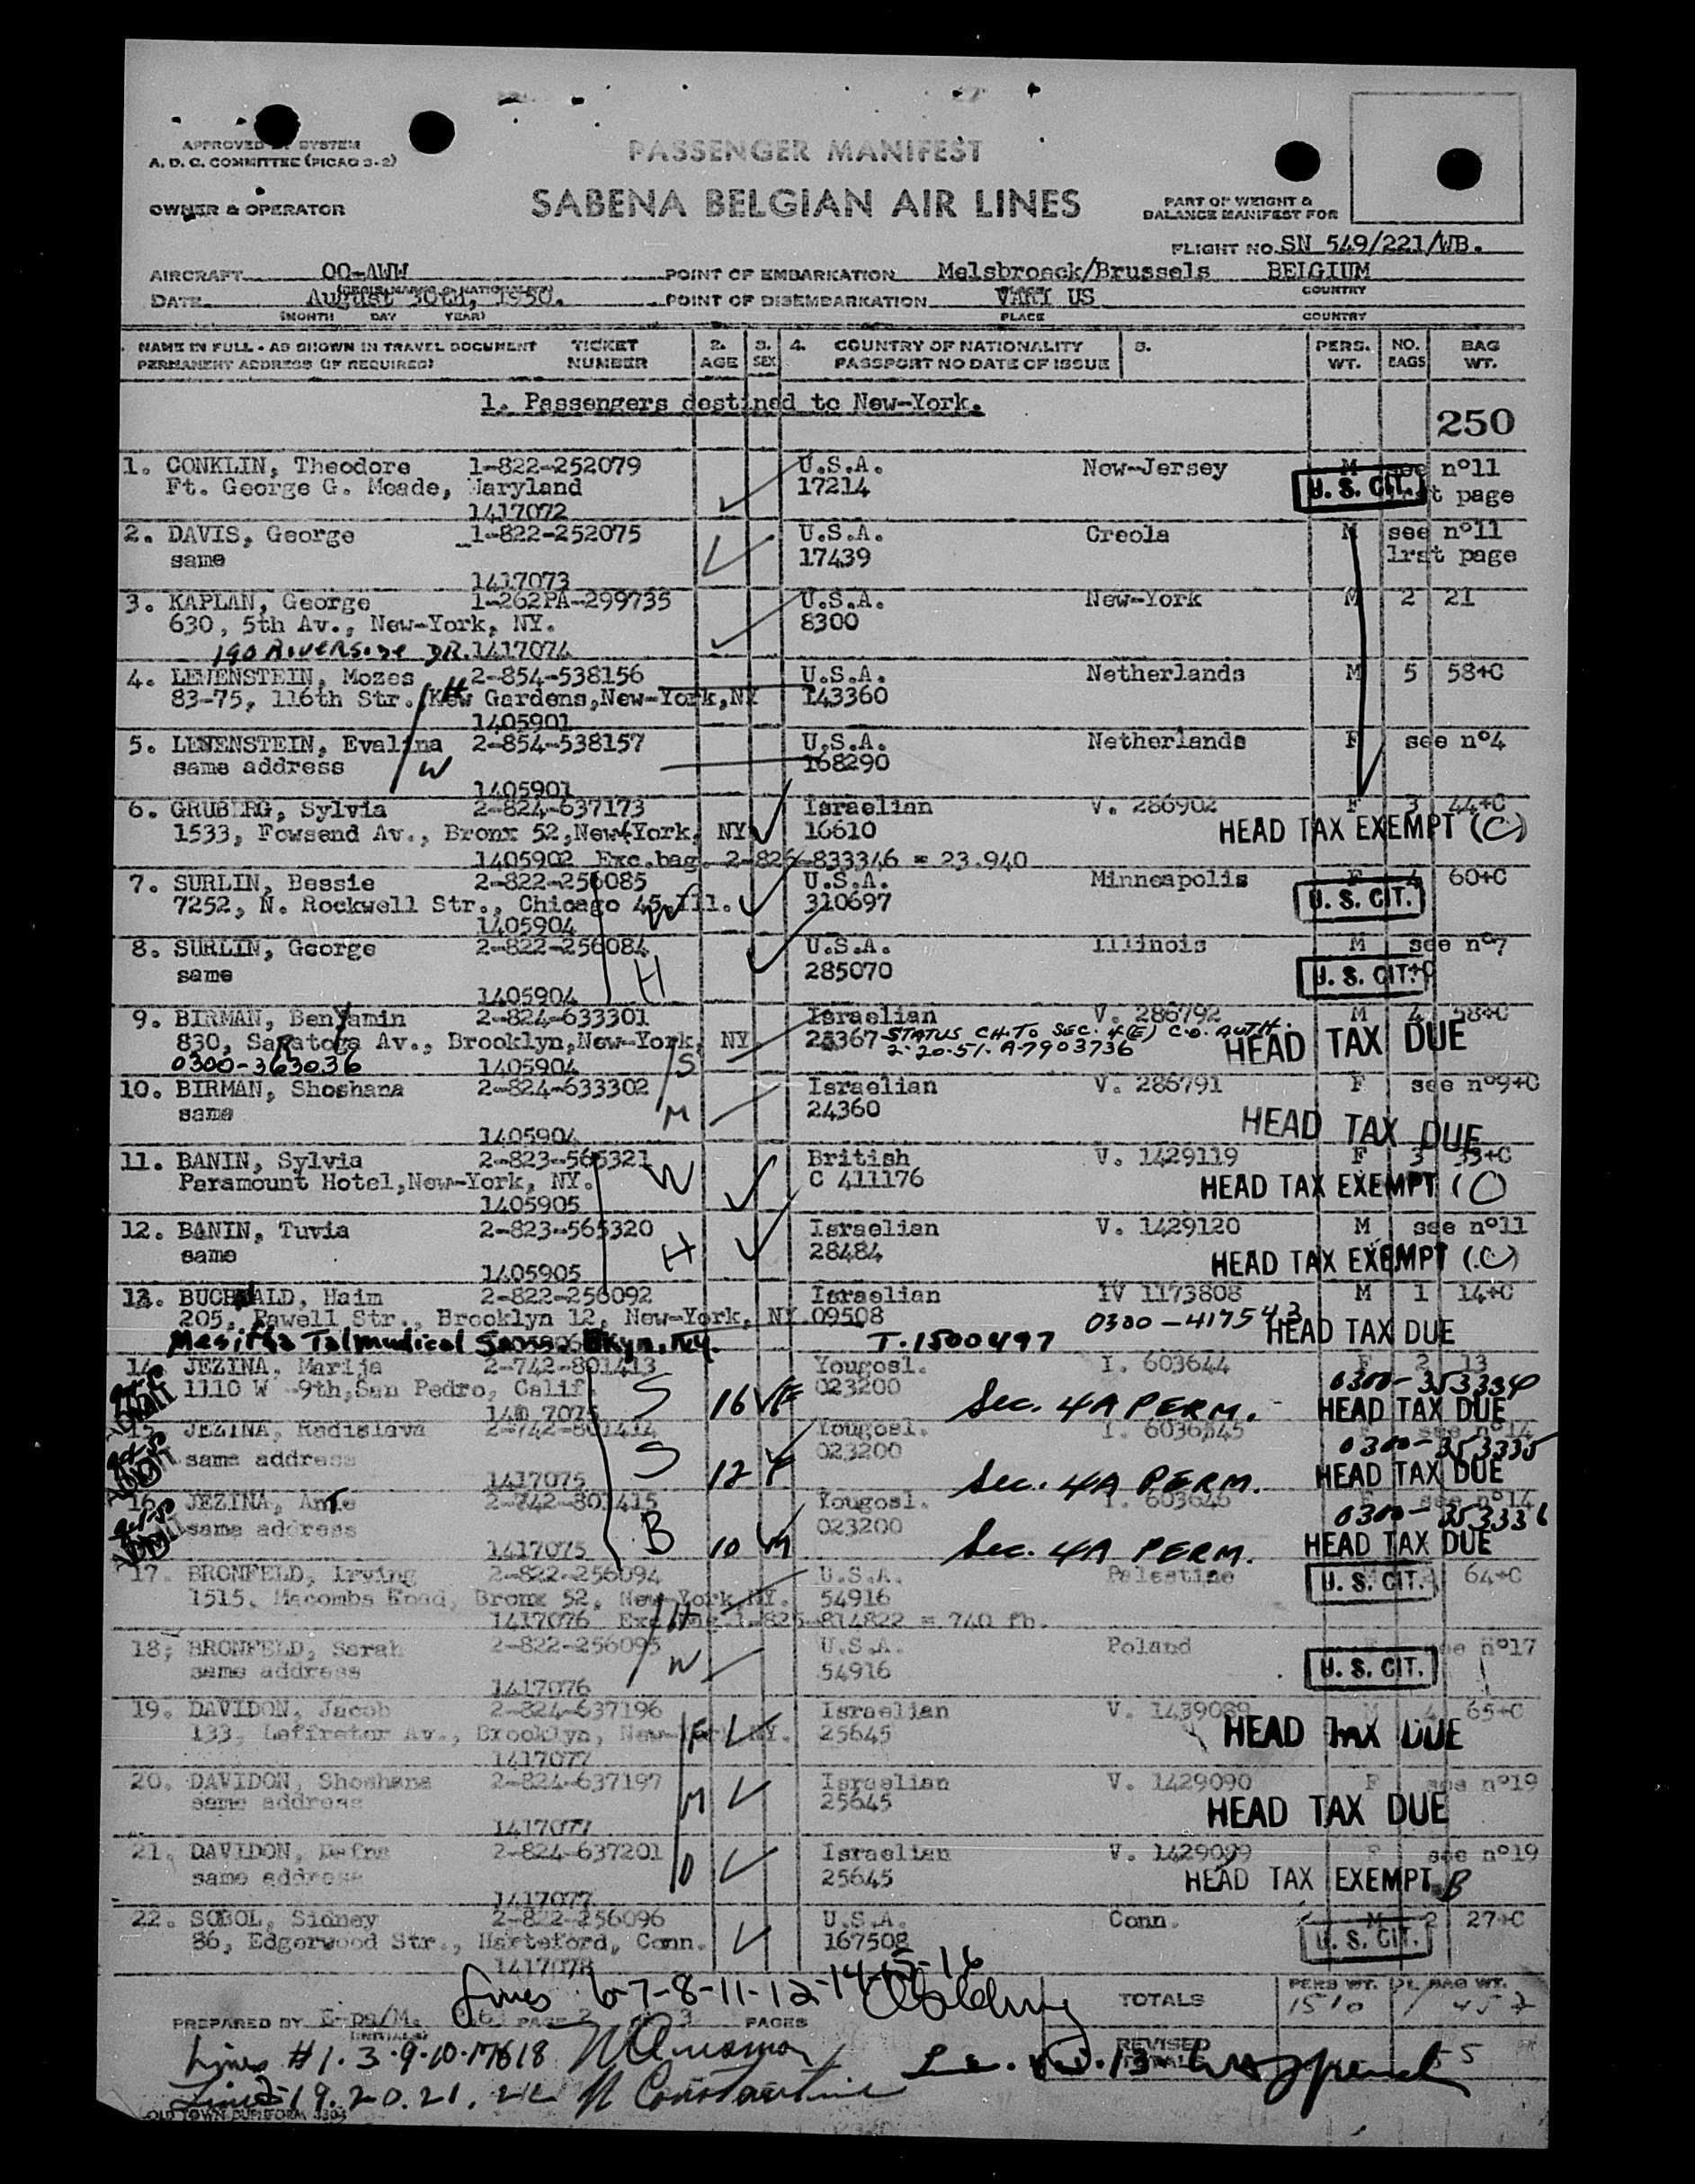 APPROVED BY SYSTEM
A. D. C. COMMITTEE (PICAO 3-2)
PASSENGER MANIFEST
OWNER & OPERATOR
SABENA BELGIAN AIR LINES
PART OF WEIGHT &
BALANCE MANIFEST FOR
FLIGHT NO. SN 549/221/WB.
AIRCRAFT OO-AWW POINT OF EMBARKATION Melsbroeck/Brussels BELGIUM
COUNTRY
DATE August 30th, 1950. POINT OF DISEMBARKATION US
(MONTH DAY YEAR) PLACE COUNTRY
NAME IN FULL - AS SHOWN IN TRAVEL DOCUMENT TICKET 2. 3. 4. COUNTRY OF NATIONALITY 5. PERS. NO. BAG
PERMANENT ADDRESS (IF REQUIRED) NUMBER AGE SEX PASSPORT NO DATE OF ISSUE WT. BAGS WT.
1. Passengers destined to New-York.
250
1. CONKLIN, Theodore 1-822-252079 U.S.A. New-Jersey M see n°11
Ft. George G. Meade, Maryland 17214 U. S. CIT. page
1417072
2. DAVIS, George 1-822-252075 U.S.A. Creola M see n°11
same 17439 lrst page
1417073
3. KAPLAN, George 1-262PA-299735 U.S.A. New-York M 2 21
630, 5th Av., New-York, NY. 8300
190 RIVERSIDE DR. 1417074
4. LEVENSTEIN, Mozes H 2-854-538156 U.S.A. Netherlands M 5 58+C
83-75, 116th Str. Kew Gardens,New-York,NY 143360
1405901
5. LEVENSTEIN, Evalina 2-854-538157 U.S.A. Netherlands F see n°4
same address W 168290
1405901
6. GRUBERG, Sylvia 2-824-637173 Israelian V. 286902 F 3 44+C
1533, Fowsend Av., Bronx 52,New-York, NY 16610 HEAD TAX EXEMPT (C)
1405902 Exc.bag. 2-826-833346 = 23.940
7. SURLIN, Bessie 2-822-256085 U.S.A. Minneapolis F 4 60+C
7252, N. Rockwell Str., Chicago 45, Ill. W 310697 U. S. CIT.
1405904
8. SURLIN, George 2-822-256084 U.S.A. Illinois M see n°7
same H 285070 U. S. CIT. +C
1405904
9. BIRMAN, Benyamin 2-824-633301 Israelian V. 286792 M 4 58+C
830, Saratoga Av., Brooklyn,New-York, NY 25367 STATUS CH. TO SEC. 4(E) C.O. AUTH. HEAD TAX DUE
0300-363036 1405904 S 2-20-51. A-7903736
10. BIRMAN, Shoshana 2-824-633302 Israelian V. 286791 F see n°9+C
same M 24360 HEAD TAX DUE
1405904
11. BANIN, Sylvia 2-823-565321 W British V. 1429119 F 3 33+C
Paramount Hotel,New-York, NY. C 411176 HEAD TAX EXEMPT (C)
1405905
12. BANIN, Tuvia 2-823-565320 Israelian V. 1429120 M see n°11
same H 28484 HEAD TAX EXEMPT (C)
1405905
13. BUCHWALD, Haim 2-822-256092 Israelian IV 1173808 M 1 14+C
205, Pawell Str., Brooklyn 12, New-York, NY. 09508 0300-417543 HEAD TAX DUE
Mesivtha Talmudical Bkyn. NY. T.1500497
14. JEZINA, Marija 2-742-801413 Yougosl. I. 603644 F 2 13
1110 W -9th,San Pedro, Calif. S 16 F 023200 Sec. 4A PERM. 0300-353334 HEAD TAX DUE
7075
15. JEZINA, Radislava 2-742-801414 Yougosl. I. 603645 see n°14
same address S 12 F 023200 Sec. 4A PERM. 0300-353335 HEAD TAX DUE
1417075
16. JEZINA, Ante 2-742-801415 Yougosl. I. 603646 see n°14
same address B 10 M 023200 Sec. 4A PERM. 0300-353336 HEAD TAX DUE
1417075
17. BRONFELD, Irving 2-822-256094 U.S.A. Palestine U. S. CIT. 64+C
1515, Macombs Road, Bronx 52, New-York NY. 54916
1417076 Exc.bag 1-825-814822 = 740 fb. H
18; BRONFELD, Sarah 2-822-256095 U.S.A. Poland see n°17
same address W 54916 U. S. CIT.
1417076
19. DAVIDON, Jacob 2-824-637196 Israelian V. 1439089 M 4 65+C
133, Laffrator Av., Brooklyn, New-York NY. F 25645 HEAD TAX DUE
1417077
20. DAVIDON, Shoshana 2-824-637197 Israelian V. 1429090 F see n°19
same address M 25645 HEAD TAX DUE
1417077
21. DAVIDON, Dafna 2-824-637201 Israelian V. 1429099 F see n°19
same address D 25645 HEAD TAX EXEMPT B
1417077
22. SOBOL, Sidney 2-822-256096 U.S.A. Conn. M 2 27+C
86, Edgerwood Str., Harteford, Conn. 167508 U. S. CIT.
1417078
Lines 6-7-8-11-12-14-15-16
TOTALS PERS WT. BAG WT.
1510 457
PREPARED BY PAGE 2 3 PAGES
(INITIALS)
REVISED TOTALS
Lines #1.3.9.10.17&18
Lines 19.20.21.22 N Constantine
OLD TOWN DUPLIFORM